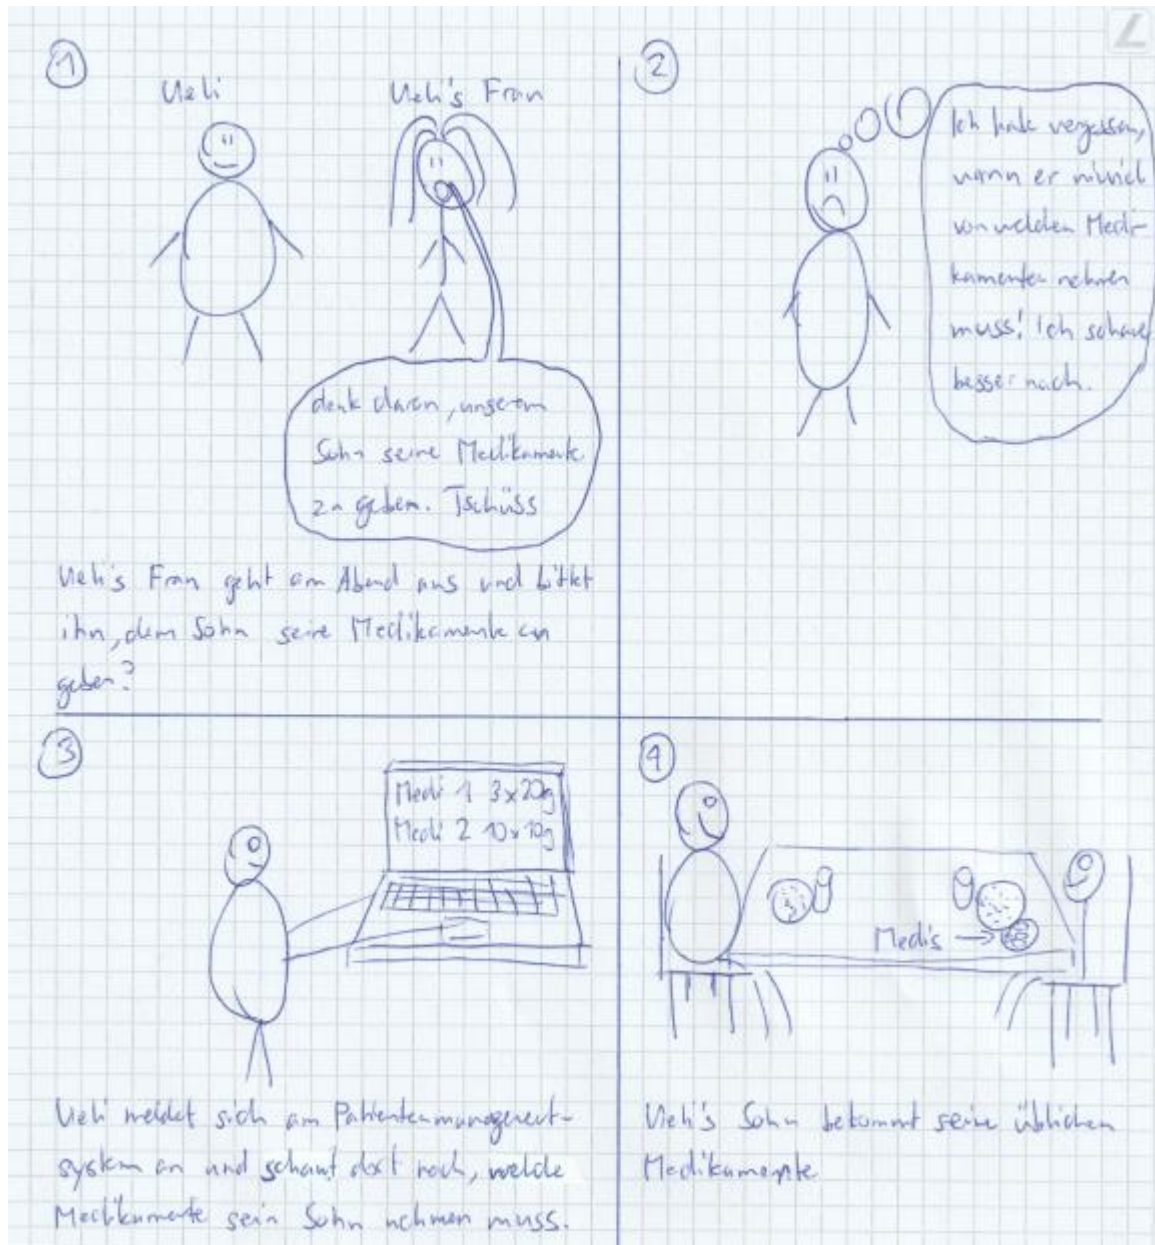 1
Ueli
Ueli's Frau
denk daran, unserem
Sohn seine Medikamente
zu geben. Tschüss
Ueli's Frau geht am Abend aus und bittet
ihn, dem Sohn seine Medikamente zu
geben?
2
Ich habe vergessen,
wann er wieviel
von welchen Medi-
kamenten nehmen
muss! Ich schaue
besser nach.
3
Medi 1 3x20g
Medi 2 10x10g
Ueli meldet sich am Patientenmanagement-
system an und schaut dort nach, welche
Medikamente sein Sohn nehmen muss.
4
Medis
Ueli's Sohn bekommt seine üblichen
Medikamente